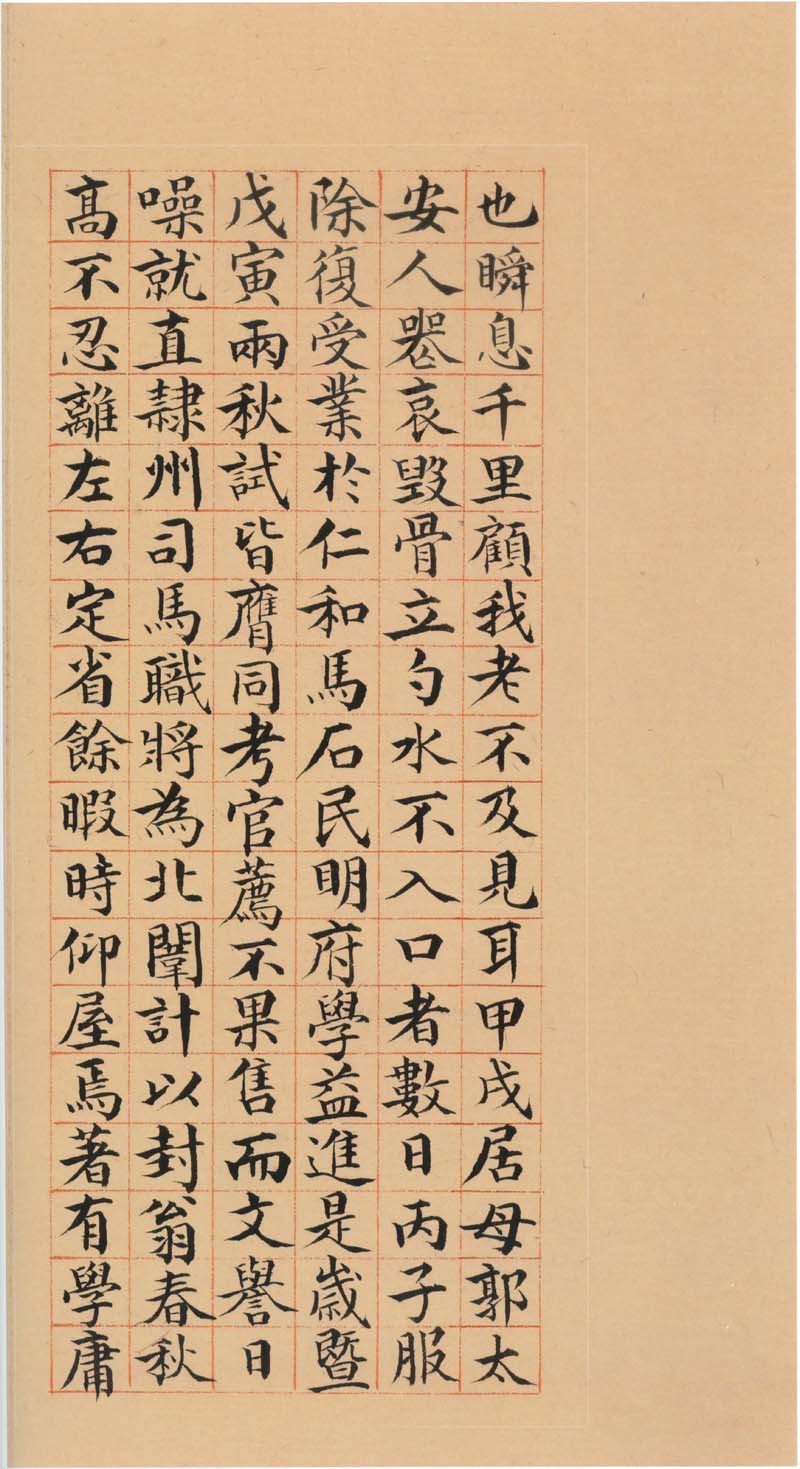 也瞬息千里顧我老不及見耳甲戌居母郭太
安人喪哀毀骨立勺水不入口者數日丙子服
除復受業於仁和馬石民明府學益進是歲暨
戊寅兩秋試皆膺同考官薦不果售而文譽日
噪就直隸州司馬職將為北闈計以封翁春秋
高不忍離左右定省餘暇時仰屋焉著有學庸